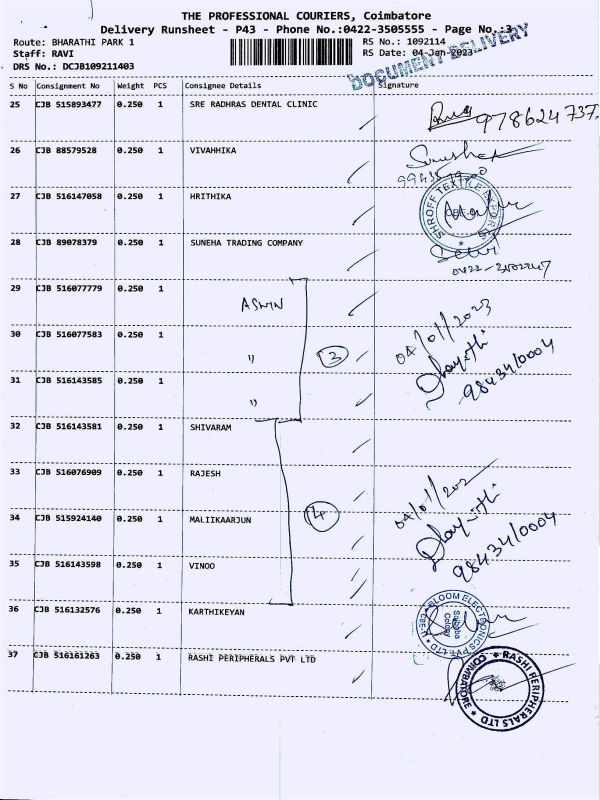 THE PROFESSIONAL COURIERS, Coimbatore
Delivery Runsheet - P43 - Phone No.:0422-3505555 - Page No.:3
Route: BHARATHI PARK 1 RS No.: 1092114
Staff: RAVI RS Date: 04-Jan-2023
DRS No.: DCJB109211403
DOCUMENT DELIVERY
S No Consignment No Weight PCS Consignee Details Signature
25 CJB 515893477 0.250 1 SRE RADHRAS DENTAL CLINIC
26 CJB 88579528 0.250 1 VIVAHHIKA
27 CJB 516147058 0.250 1 HRITHIKA
SHROFF TEXTILE
28 CJB 89078379 0.250 1 SUNEHA TRADING COMPANY
29 CJB 516077779 0.250 1 ASWIN
04/01/2023
30 CJB 516077583 0.250 1 " 3
31 CJB 516143585 0.250 1 " 98434/0004
32 CJB 516143581 0.250 1 SHIVARAM
33 CJB 516076909 0.250 1 RAJESH
34 CJB 515924140 0.250 1 MALIIKAARJUN 4
35 CJB 516143598 0.250 1 VINOO 98434/0004
36 CJB 516132576 0.250 1 KARTHIKEYAN
BLOOM ELECTRONICS PVT LTD
37 CJB 516161263 0.250 1 RASHI PERIPHERALS PVT LTD
RASHI PERIPHERALS LTD COIMBATORE